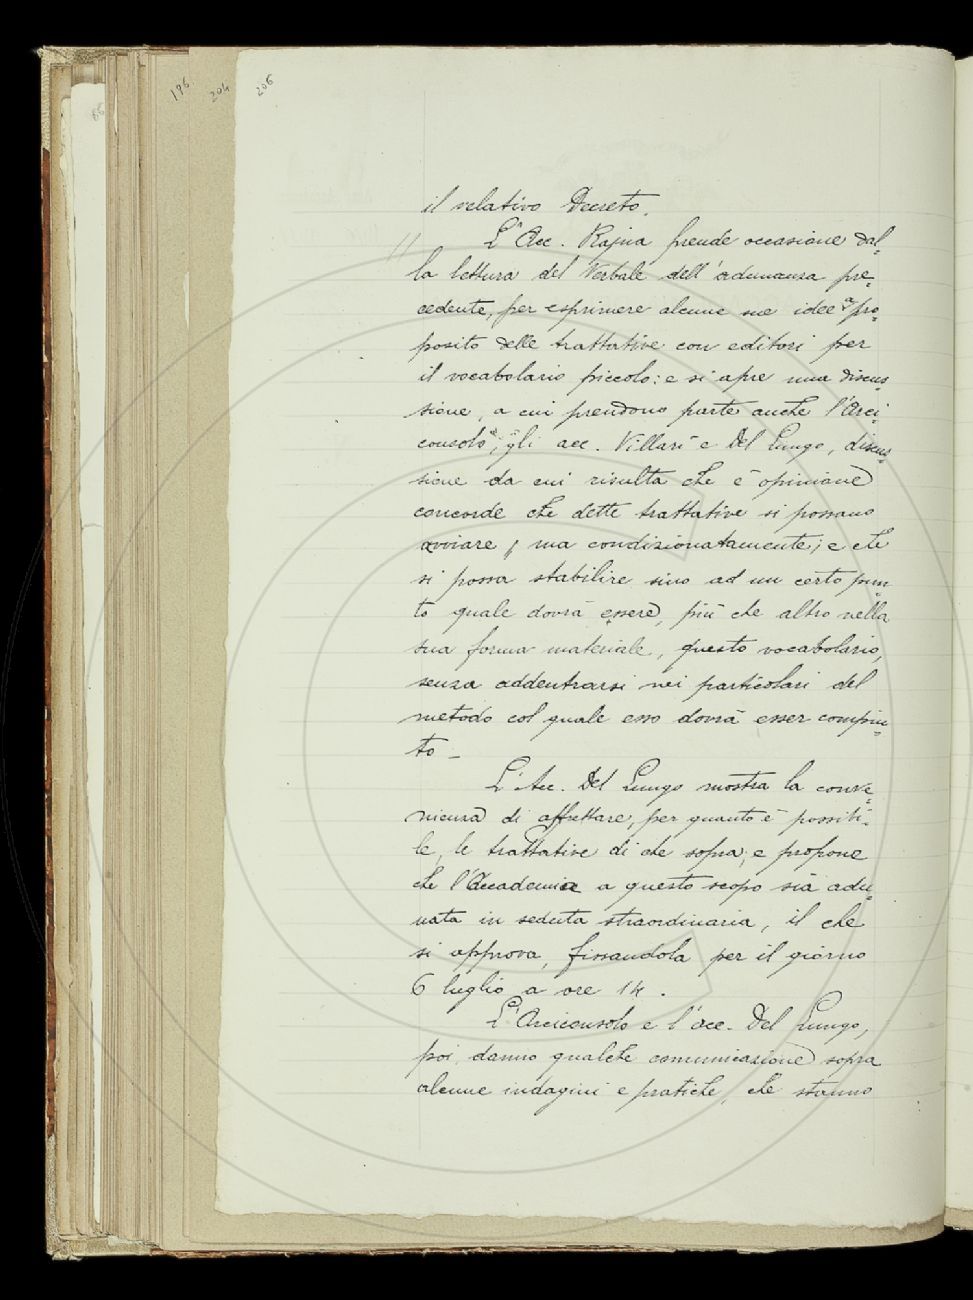 196 204 206
il relativo Decreto.
L'Acc. Rajna prende occasione dal-
la lettura del Verbale dell'adunanza pre-
cedente, per esprimere alcune sue idee a pro-
posito delle trattative con editori per
il vocabolario piccolo: e si apre una discus-
sione, a cui prendono parte anche l'Arci-
consolo e gli acc. Villari e Del Lungo, discus-
sione da cui risulta che è opinione
concorde che dette trattative si possano
avviare, ma condizionatamente; e che
si possa stabilire sino ad un certo pun-
to quale dovrà essere, più che altro nella
sua forma materiale, questo vocabolario,
senza addentrarsi nei particolari del
metodo col quale esso dovrà esser compiu-
to –
L'Acc. Del Lungo mostra la conve-
nienza di affrettare, per quanto è possibi-
le, le trattative di che sopra, e propone
che l'Accademia a questo scopo sia adu-
nata in seduta straordinaria, il che
si approva, fissandola per il giorno
6 luglio a ore 14.
L'Arciconsolo e l'acc. Del Lungo,
poi, danno qualche comunicazione sopra
alcune indagini e pratiche, che stanno